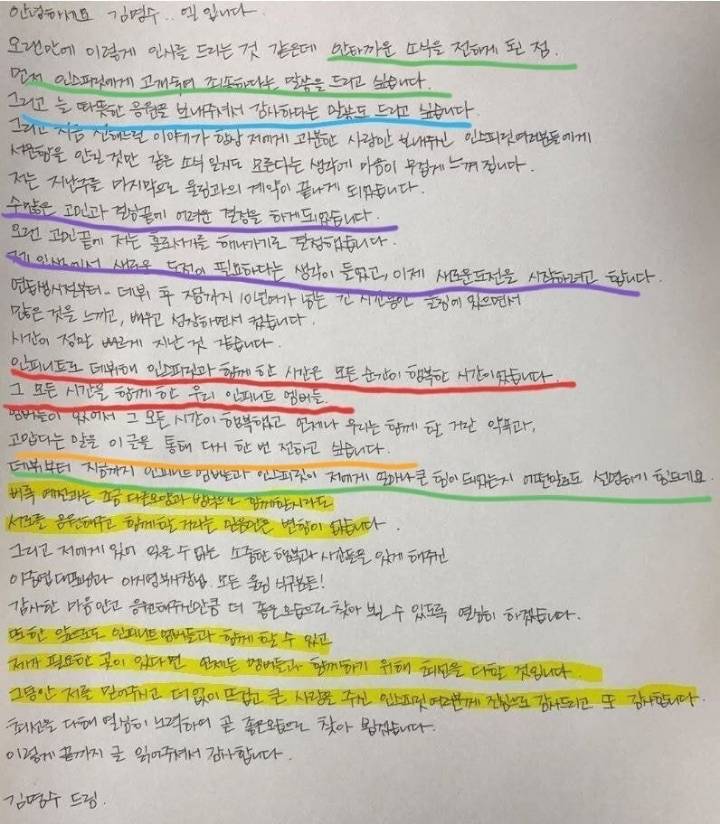 안녕하세요 김명수.. 엘 입니다
오랜만에 이렇게 인사를 드리는 것 같은데 안타까운 소식을 전하게 된 점.
먼저 인스피릿에게 고개숙여 죄송하다는 말씀을 드리고 싶습니다.
그리고 늘 따뜻한 응원을 보내주셔서 감사하다는 말씀도 드리고 싶습니다.
그리고 지금 전해드릴 이야기가 항상 저에게 과분한 사랑만 보내주신 인스피릿여러분들에게
서운함을 안긴 것만 같은 소식 일지도 모른다는 생각에 마음이 무겁게 느껴집니다.
저는 지난주를 마지막으로 울림과의 계약이 끝나게 되었습니다.
수많은 고민과 걱정끝에 어려운 결정을 하게되었습니다.
오랜 고민끝에 저는 홀로서기를 해나가기로 결정했습니다.
제 인생에서 새로운 도전이 필요하다는 생각이 들었고, 이제 새로운도전을 시작하려고 합니다.
연습생시절부터- 데뷔 후 지금까지 10년여가 넘는 긴 시간동안 울림에 있으면서
많은 것을 느끼고, 배우고 성장하면서 컸습니다.
시간이 정말 빠르게 지난 것 같습니다.
인피니트로 데뷔해 인스피릿과 함께 한 시간은 모든 순간이 행복한 시간이었습니다.
그 모든 시간을 함께 한 우리 인피니트 멤버들.
멤버들이 있어서 그 모든 시간이 행복했고 언제나 우리는 함께 할 거란 약속과,
고맙다는 말을 이 글을 통해 다시 한 번 전하고 싶습니다.
데뷔부터 지금까지 인피니트멤버들과 인스피릿이 저에게 얼마나 큰 힘이 되었는지 어떤말로도 설명하기 힘드네요.
비록 예전과는 조금 다른모양과 방향으로 함께할지라도
서로를 응원해주고 함께할 거라는 믿음만은 변함이 없습니다.
그리고 저에게 있어 잊을 수 없는 소중한 행복과 시간들을 있게 해주신
이중엽대표님과 이지영부사장님. 모든 울림 식구분들!
감사한 마음안고 응원해주신만큼 더 좋은모습으로 찾아 뵐 수 있도록 열심히 하겠습니다.
또한 앞으로도 인피니트멤버들과 함께 할 수 있고
제가 필요한 곳이 있다면 언제든 멤버들과 함께하기 위해 최선을 다할 것입니다.
그동안 저를 믿어주시고 더 없이 뜨겁고 큰 사랑을 주신 인스피릿여러분께 진심으로 감사드리고 또 감사합니다.
최선을 다해 열심히 노력하여 곧 좋은모습으로 찾아 뵙겠습니다.
이렇게 끝까지 글 읽어주셔서 감사합니다.
김명수 드림.